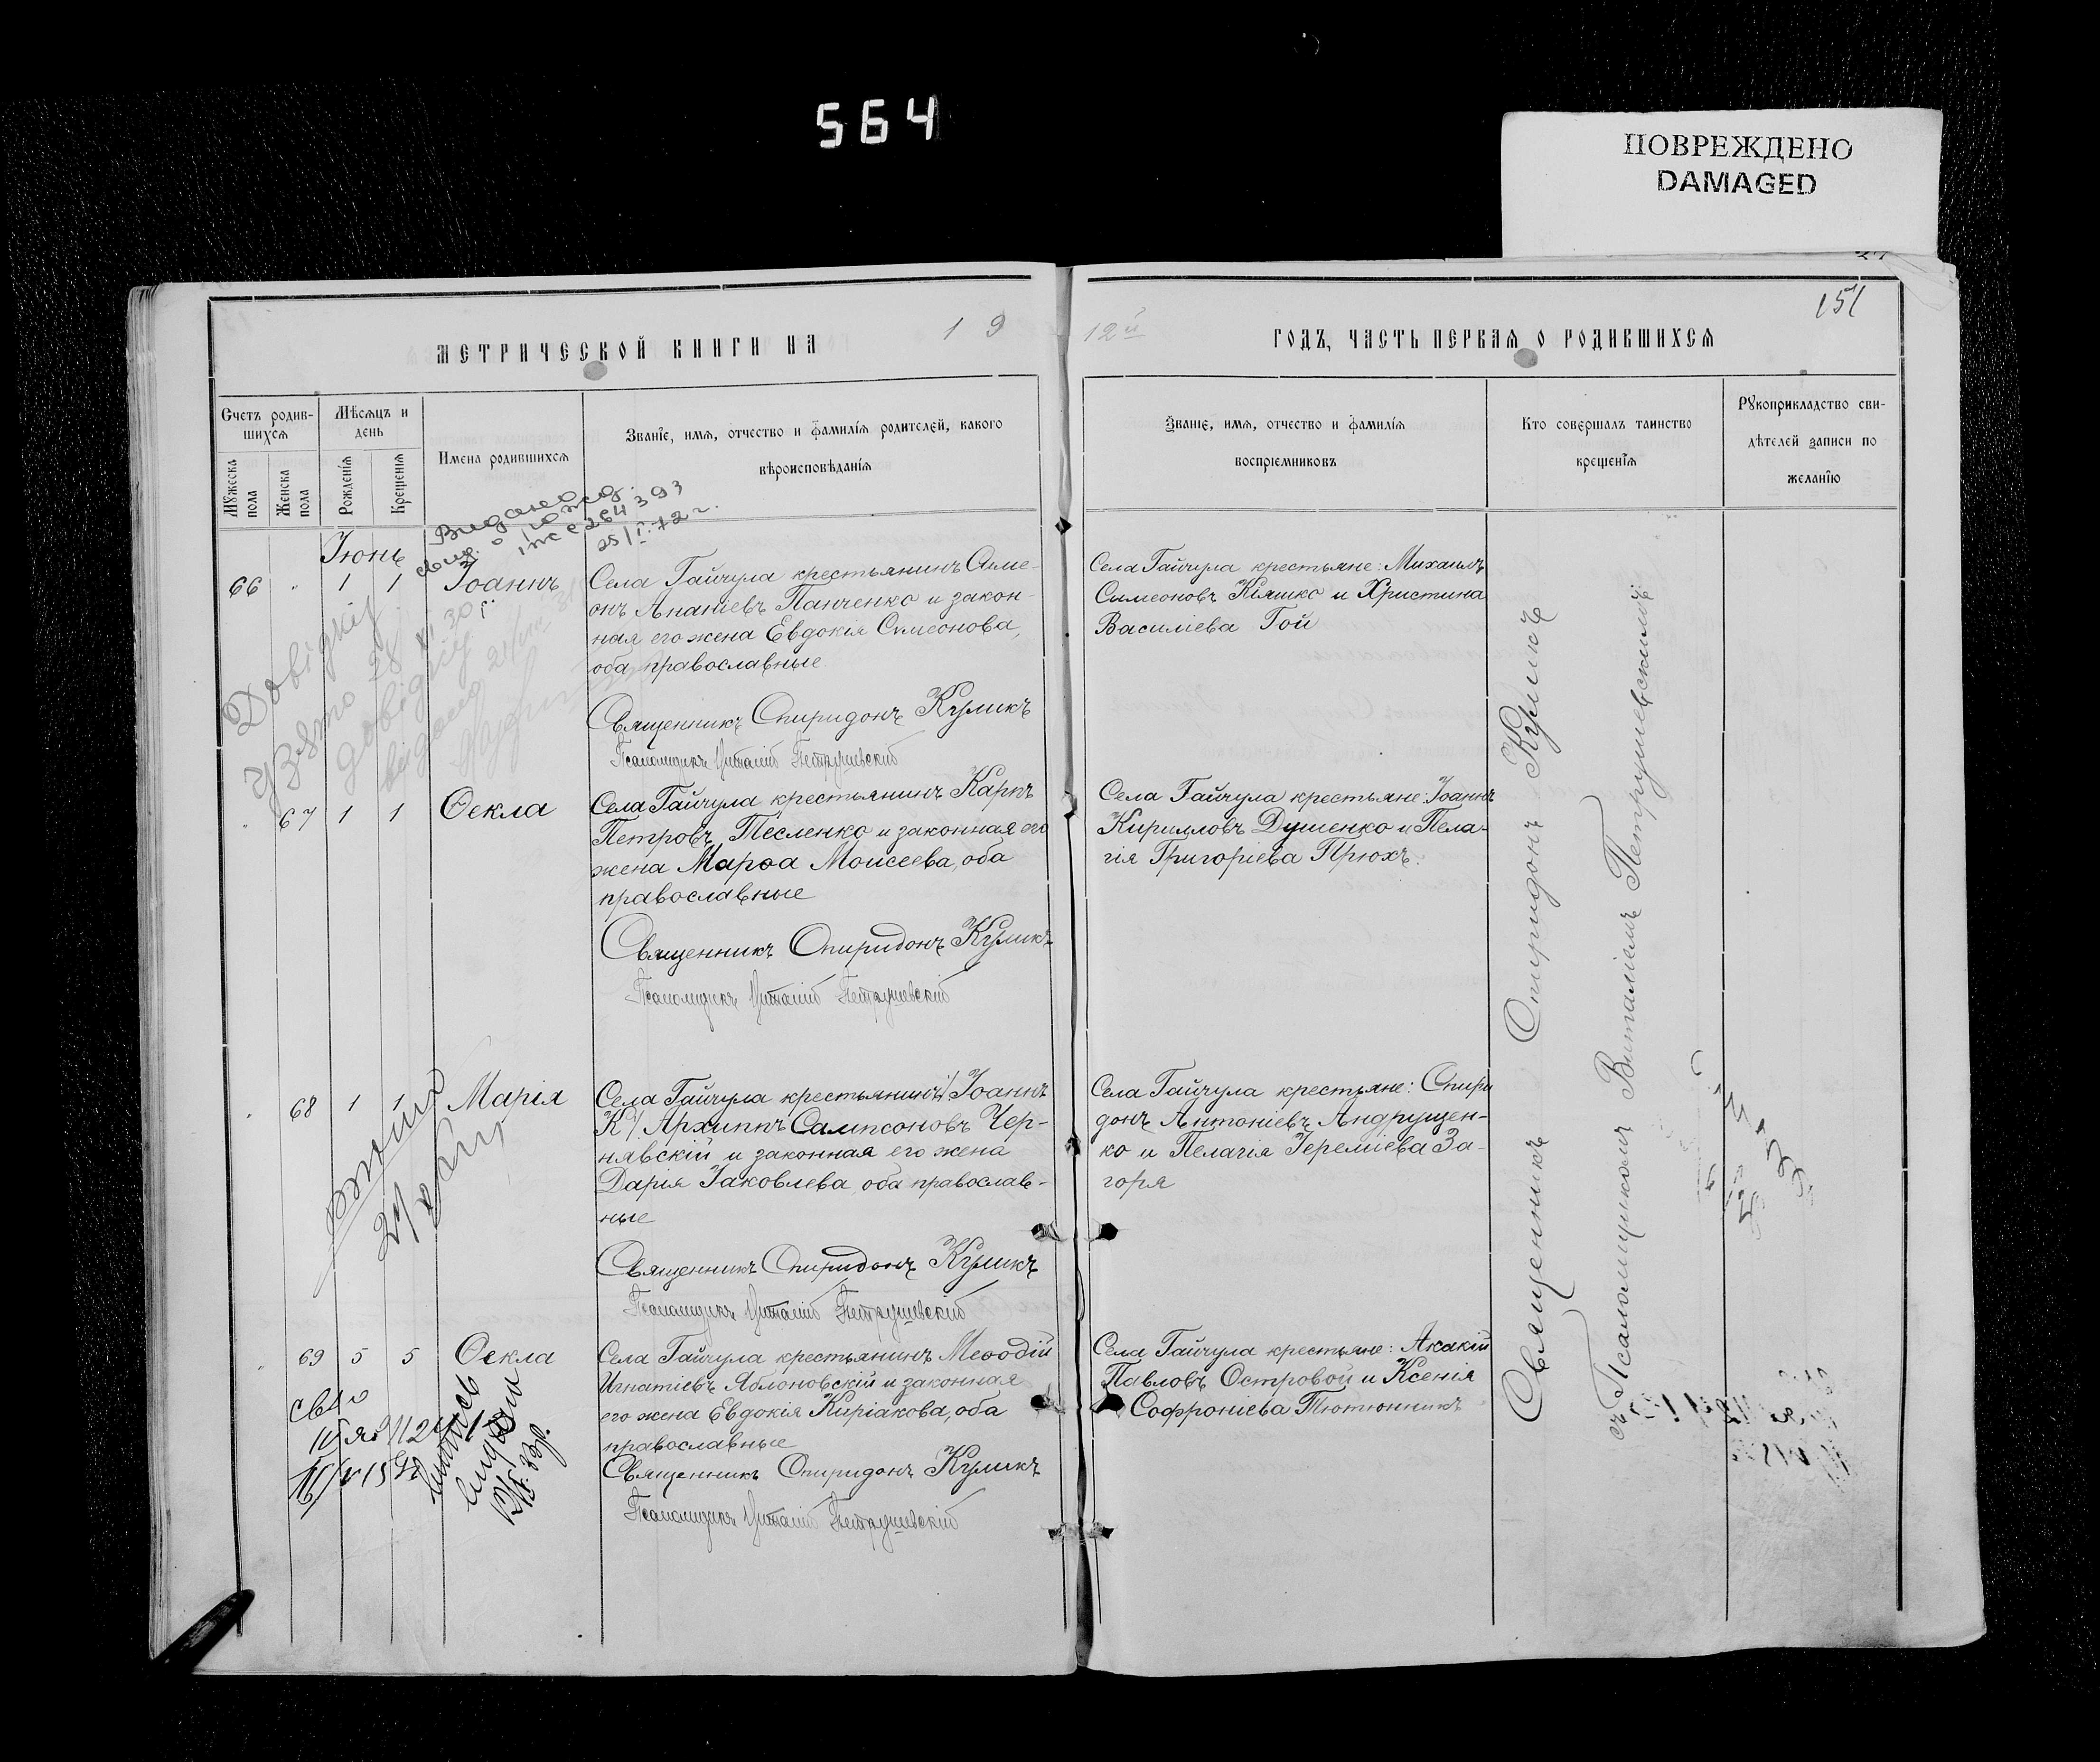 564
ПОВРЕЖДЕНО
DAMAGED
151
МЕТРИЧЕСКОЙ КНИГИ НА 19
12й ГОДЪ, ЧАСТЬ ПЕРВАЯ О РОДИВШИХСЯ
Счетъ родив-
шихся
Мужеска
пола
Женска
пола
Мѣсяцъ и
день
Рожденія
Крещенія
Имена родившихся
Званіе, имя, отчество и фамилія родителей, какого
вѣроисповѣданія
Званіе, имя, отчество и фамилія
воспріемниковъ
Кто совершалъ таинство
крещенія
Рукоприкладство сви-
дѣтелей записи по
желанію
Іюнь
66 " 1 1 Іоаннъ
Села Гайчула крестьянинъ Симе-
онъ Ананіевъ Панченко и закон-
ная его жена Евдокія Симеонова,
оба православные
Священникъ Спиридонъ Куликъ
Псаломщикъ Виталій Петрушевскій
Села Гайчула крестьяне: Михаилъ
Симеоновъ Кіяшко и Христина
Василіева Гой
" 67 1 1 Ѳекла
Села Гайчула крестьянинъ Карпъ
Петровъ Тесленко и законная его
жена Марѳа Моисеева, оба
православные
Священникъ Спиридонъ Куликъ
Псаломщикъ Виталій Петрушевскій
Села Гайчула крестьяне: Іоаннъ
Кирилловъ Душенко и Пела-
гія Григоріева Прюхъ.
" 68 1 1 Марія
Села Гайчула крестьянинъ Іоаннъ
К/ Архиппъ Сампсоновъ Чер-
нявскій и законная его жена
Дарія Іаковлева оба православ-
ные
Священникъ Спиридонъ Куликъ
Псаломщикъ Виталій Петрушевскій
Села Гайчула крестьяне: Спири
донъ Антоніевъ Андрущен-
ко и Пелагія Іереміева За-
горя
" 69 5 5 Ѳекла
Села Гайчула крестьянинъ Меѳодій
Игнатіевъ Яблоновскій и законная
его жена Евдокія Киріакова, оба
православные
Священникъ Спиридонъ Куликъ
Псаломщикъ Виталій Петрушевскій
Села Гайчула крестьяне: Акакій
Павловъ Островой и Ксенія
Софроніева Тютюнникъ
Священникъ Спиридонъ Куликъ
съ Псаломщикомъ Виталіемъ Петрушевскимъ